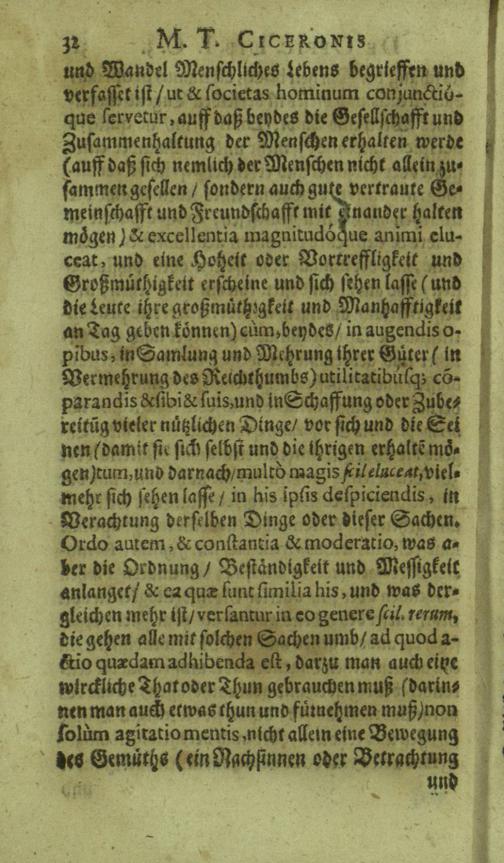 32 M. T. CICERONIS
und Wandel Menschliches Lebens begrieffen und
verfasset ist / ut & societas hominum conjunctió-
que servetur, auff daß beydes die Gesellschafft und
Zusammenhaltung der Menschen erhalten werde
(auff daß sich nemlich der Menschen nicht allein zu-
sammen gesellen / sondern auch gute vertraute Ge-
meinschafft und Freundschafft mit einander halten
mögen) & excellentia magnitudóque animi elu-
ceat, und eine Hoheit oder Vortreffligkeit und
Großmüthigkeit erscheine und sich sehen lasse (und
die Leute ihre großmüthigkeit und Manhafftigkeit
an Tag geben können) cùm, beydes / in augendis o-
pibus, in Samlung und Mehrung ihrer Güter (in
Vermehrung des Reichthumbs) utilitatibúsq; cō-
parandis & sibi & suis, und in Schaffung oder Zube-
reitūg vieler nützlichen Dinge / vor sich und die Sei
nen (damit sie sich selbst und die ihrigen erhaltē mö-
gen) tum, und darnach / multò magis scil eluceat, viel-
mehr sich sehen lasse / in his ipsis despiciendis, in
Verachtung derselben Dinge oder dieser Sachen.
Ordo autem, & constantia & moderatio, was a-
ber die Ordnung / Beständigkeit und Messigkeit
anlanget / & ea quæ sunt similia his, und was der-
gleichen mehr ist / versantur in eo genere scil. rerum,
die gehen alle mit solchen Sachen umb / ad quod a-
ctio quædam adhibenda est, darzu man auch eine
wirckliche That oder Thun gebrauchen muß (darin-
nen man auch etwas thun und fürnehmen muß) non
solùm agitatio mentis, nicht allein eine Bewegung
des Gemüths (ein Nachsinnen oder Betrachtung
und